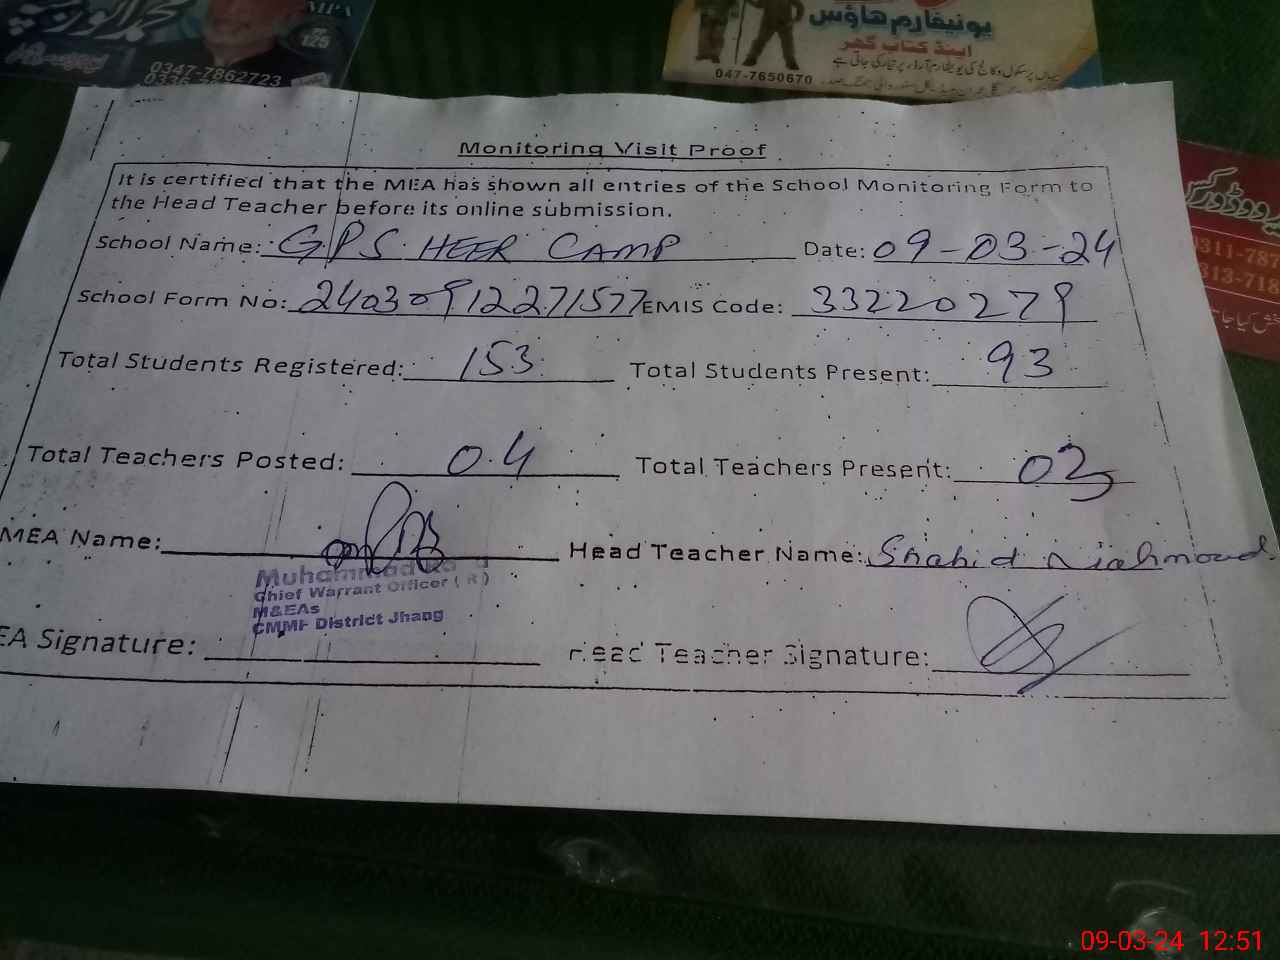 MPA
0347-7862723
یونیفارم ہاؤس
اینڈ کتاب گھر
047-7650670
Monitoring Visit Proof
It is certified that the MEA has shown all entries of the School Monitoring Form to
the Head Teacher before its online submission.
School Name: G.P.S. HEER CAMP Date: 09-03-24
School Form No: 240309122271577 EMIS Code: 33220279
Total Students Registered: 153 Total Students Present: 93
Total Teachers Posted: 04 Total Teachers Present: 03
MEA Name: Head Teacher Name: Shahid Mahmood
Muhammad
Chief Warrant Officer ( R )
M&EAs
CMMF District Jhang
EA Signature: Head Teacher Signature:
0311-787
313-718
09-03-24 12:51